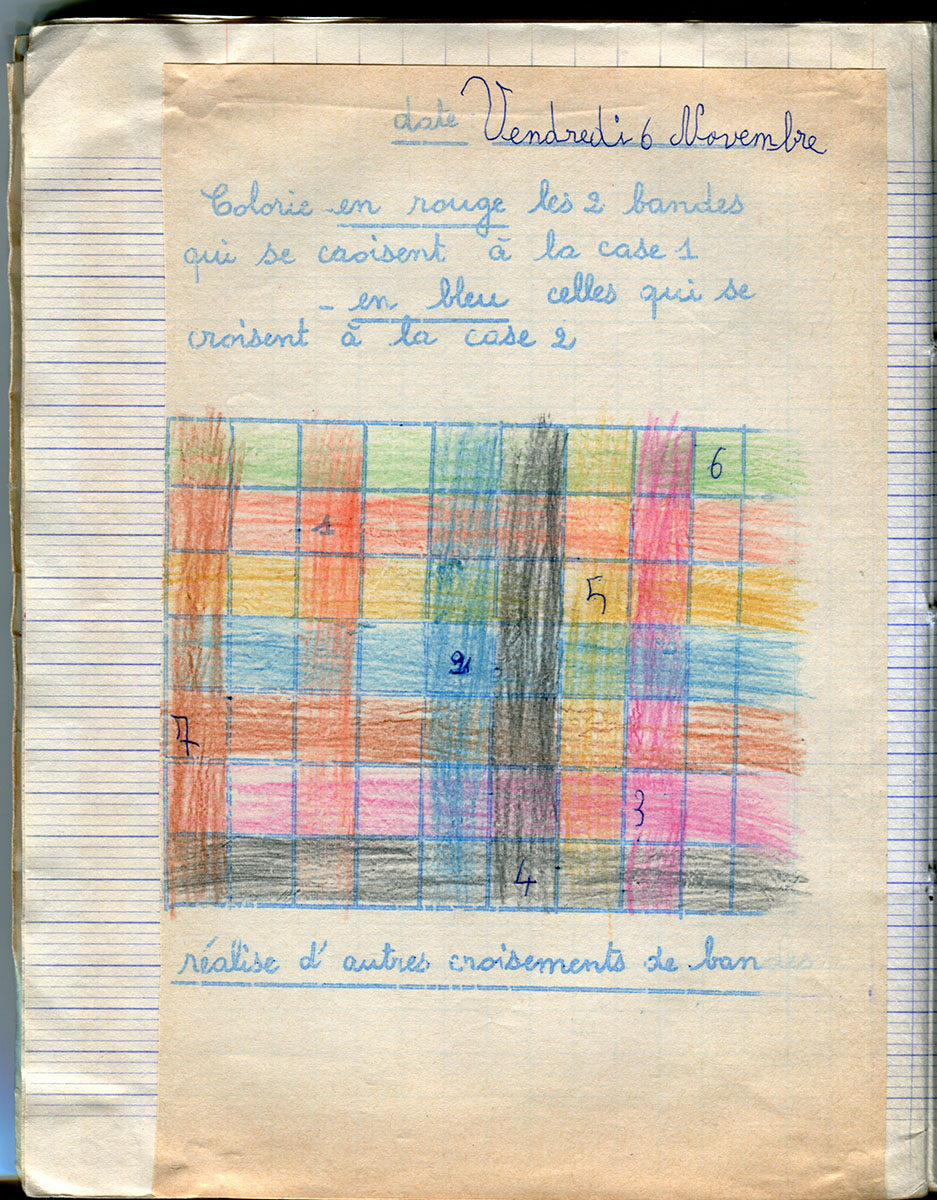 date Vendredi 6 Novembre
Colorie en rouge les 2 bandes
qui se croisent à la case 1
- en bleu celles qui se
croisent à la case 2
6
1
5
2
7
3
4
réalise d'autres croisements de bandes